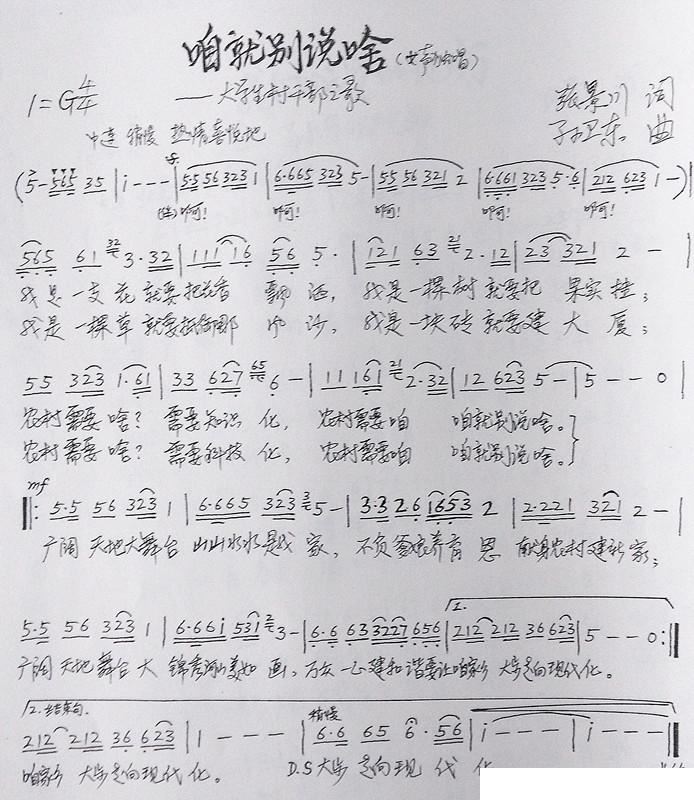 咱就别说啥(女声独唱)
1=G4/4 ——大学生村干部之歌 张景川 词
中速 稍慢 热情喜悦地 孙卫东 曲
(5- 565 35 | i - - - | 55 56 323 1 | 6·665 323 5- | 55 56 321 2 | 6·661 323 5·6 | 212 623 1 -)
(伴)啊! 啊! 啊! 啊! 啊!
565 61 32 3·32 | 111 16 56 5· | 121 63 21 2·12 | 23 321 2 - |
我是一支花就要把花香 飘洒, 我是一棵树就要把 果实挂;
我是一棵草就要抵御那 风沙, 我是一块砖就要建 大厦;
55 323 1·61 | 33 627 65 6 - | 11 161 21 2·32 | 12 623 5 - | 5 - - 0 |
农村需要啥? 需要知识 化, 农村需要咱 咱就别说啥。
农村需要啥? 需要科技 化, 农村需要咱 咱就别说啥。
mf
5·5 56 323 1 | 6·665 323 3 5 - | 3·3 26 1653 2 | 2·221 321 2 - |
广阔 天地大舞台 山山水水是我 家, 不负爹娘养育 恩 献身农村建新家;
1.
5·5 56 323 1 | 6·66i 531 2 3 - | 6·6 63 3227 656 | 212 212 36 623 | 5 - - 0 :||
广阔 天地 舞台 大 锦秀河山美如 画, 万众 一心建和谐要让咱家乡 大步走向现代化。
2.结束句. 稍慢
212 212 36 623 | 1 - - - | 6·6 65 6·56 | i - - - | i - - - ||
咱家乡 大步走向现代化。 D.S大步 走向现 代 化